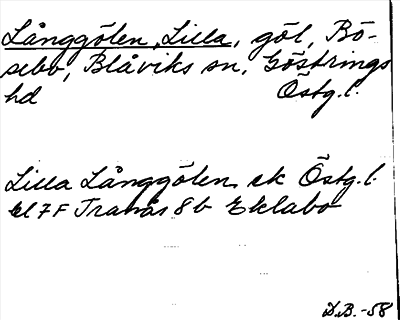 Långgölen, Lilla, göl, Bö-
sebo, Blåviks sn, Göstrings
hd Östg.l.
Lilla Långgölen ek Östg.l.
bl 7F Tranås 8b Eklabo
D.B.-58